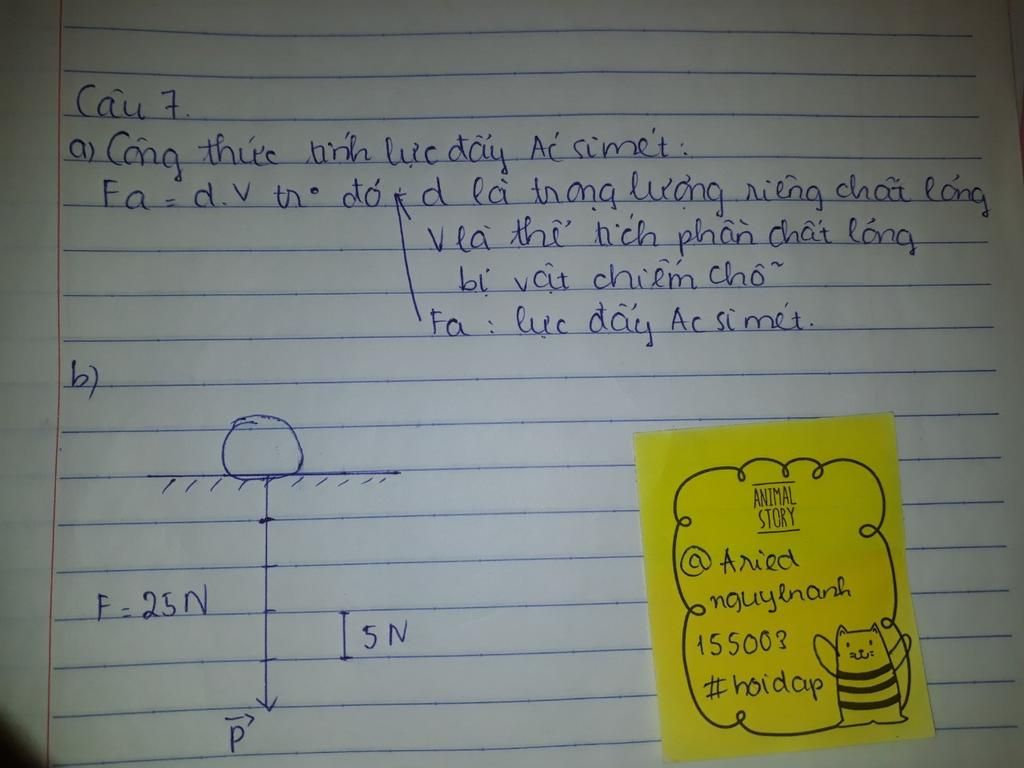 Câu 7.
a) Công thức tính lực đẩy Ác si mét:
Fa = d.V tr° đó d là trọng lượng riêng chất lỏng
V là thể tích phần chất lỏng
bị vật chiếm chỗ
Fa : lực đẩy Ac si mét.
b)
F = 25 N
5 N
P
ANIMAL
STORY
@ Aried
nguyenanh
155003
#hoidap